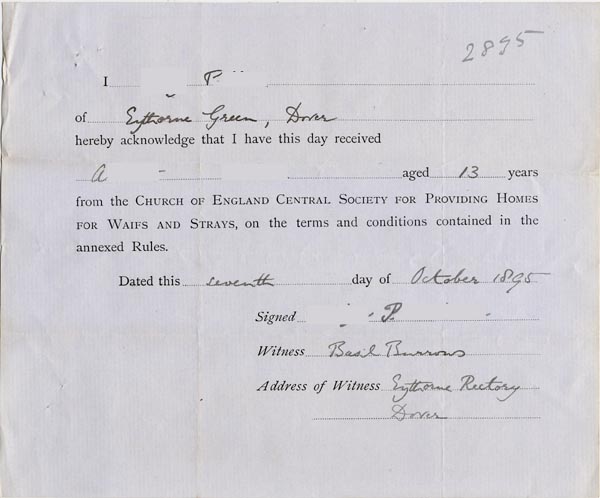 2895
I P
of Eythorne Green, Dover
hereby acknowledge that I have this day received
A aged 13 years
from the Church of England Central Society for Providing Homes
for Waifs and Strays, on the terms and conditions contained in the
annexed Rules.
Dated this seventh day of October 1895
Signed P.
Witness Basil Burrows
Address of Witness Eythorne Rectory
Dover